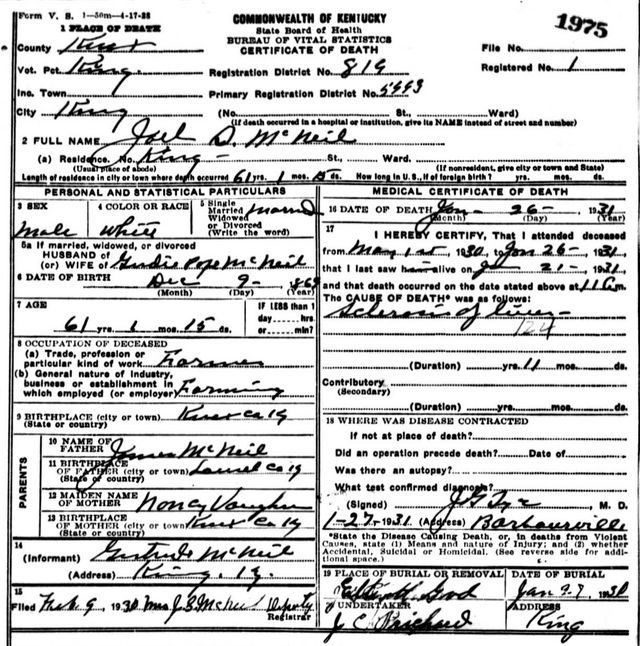 Form V. S. 1-50m-4-17-28
1975
COMMONWEALTH OF KENTUCKY
State Board of Health
BUREAU OF VITAL STATISTICS
CERTIFICATE OF DEATH
1 PLACE OF DEATH
County Knox
File No.
Vot. Pct. King
Registration District No. 819
Registered No. 1
Inc. Town
Primary Registration District No. 5993
City King (No. St., Ward)
(If death occurred in a hospital or institution, give its NAME instead of street and number)
2 FULL NAME Joel D. McNeil
(a) Residence. No. King St., Ward.
(Usual place of abode) (If nonresident, give city or town and State)
Length of residence in city or town where death occurred 61 yrs. 1 mos. 15 ds. How long in U. S., if of foreign birth? yrs. mos. ds.
PERSONAL AND STATISTICAL PARTICULARS
3 SEX Male
4 COLOR OR RACE White
5 Single Married Widowed or Divorced (Write the word) Married
5a If married, widowed, or divorced
HUSBAND of
(or) WIFE of Pope McNeil
6 DATE OF BIRTH Dec 9- 1869
(Month) (Day) (Year)
7 AGE 61 yrs. 1 mos. 15 ds.
IF LESS than 1 day hrs. or min?
8 OCCUPATION OF DECEASED
(a) Trade, profession or particular kind of work Farmer
(b) General nature of industry, business or establishment in which employed (or employer) Farming
9 BIRTHPLACE (city or town) Knox Co Ky
(State or country)
PARENTS
10 NAME OF FATHER James McNeil
11 BIRTHPLACE OF FATHER (city or town) Laurel Co Ky
(State or country)
12 MAIDEN NAME OF MOTHER Nancy Vaughn
13 BIRTHPLACE OF MOTHER (city or town) Knox Co Ky
(State or country)
14 (Informant) Gertrude McNeil
(Address) King, Ky.
15 Filed Feb 9, 1930 Mrs J. B. McNeil Deputy
Registrar
MEDICAL CERTIFICATE OF DEATH
16 DATE OF DEATH Jan- 26- 1931
(Month) (Day) (Year)
17 I HEREBY CERTIFY, That I attended deceased
from May 1st 1930, to Jan 26- 1931,
that I last saw him alive on 21- 1931
and that death occurred on the date stated above at 11 m.
The CAUSE OF DEATH* was as follows:
Sclerosis of liver
124
(Duration) yrs. 11 mos. ds.
Contributory
(Secondary)
(Duration) yrs. mos. ds.
18 WHERE WAS DISEASE CONTRACTED
If not at place of death?
Did an operation precede death? Date of
Was there an autopsy?
What test confirmed diagnosis?
(Signed) J G Tye M. D.
1-27-1931 (Address) Barbourville
*State the Disease Causing Death, or, in deaths from Violent
Causes, state (1) Means and nature of Injury; and (2) whether
Accidental, Suicidal or Homicidal. (See reverse side for addi-
tional space.)
19 PLACE OF BURIAL OR REMOVAL
DATE OF BURIAL
Jan 27 1930
UNDERTAKER J C Prichard
ADDRESS King